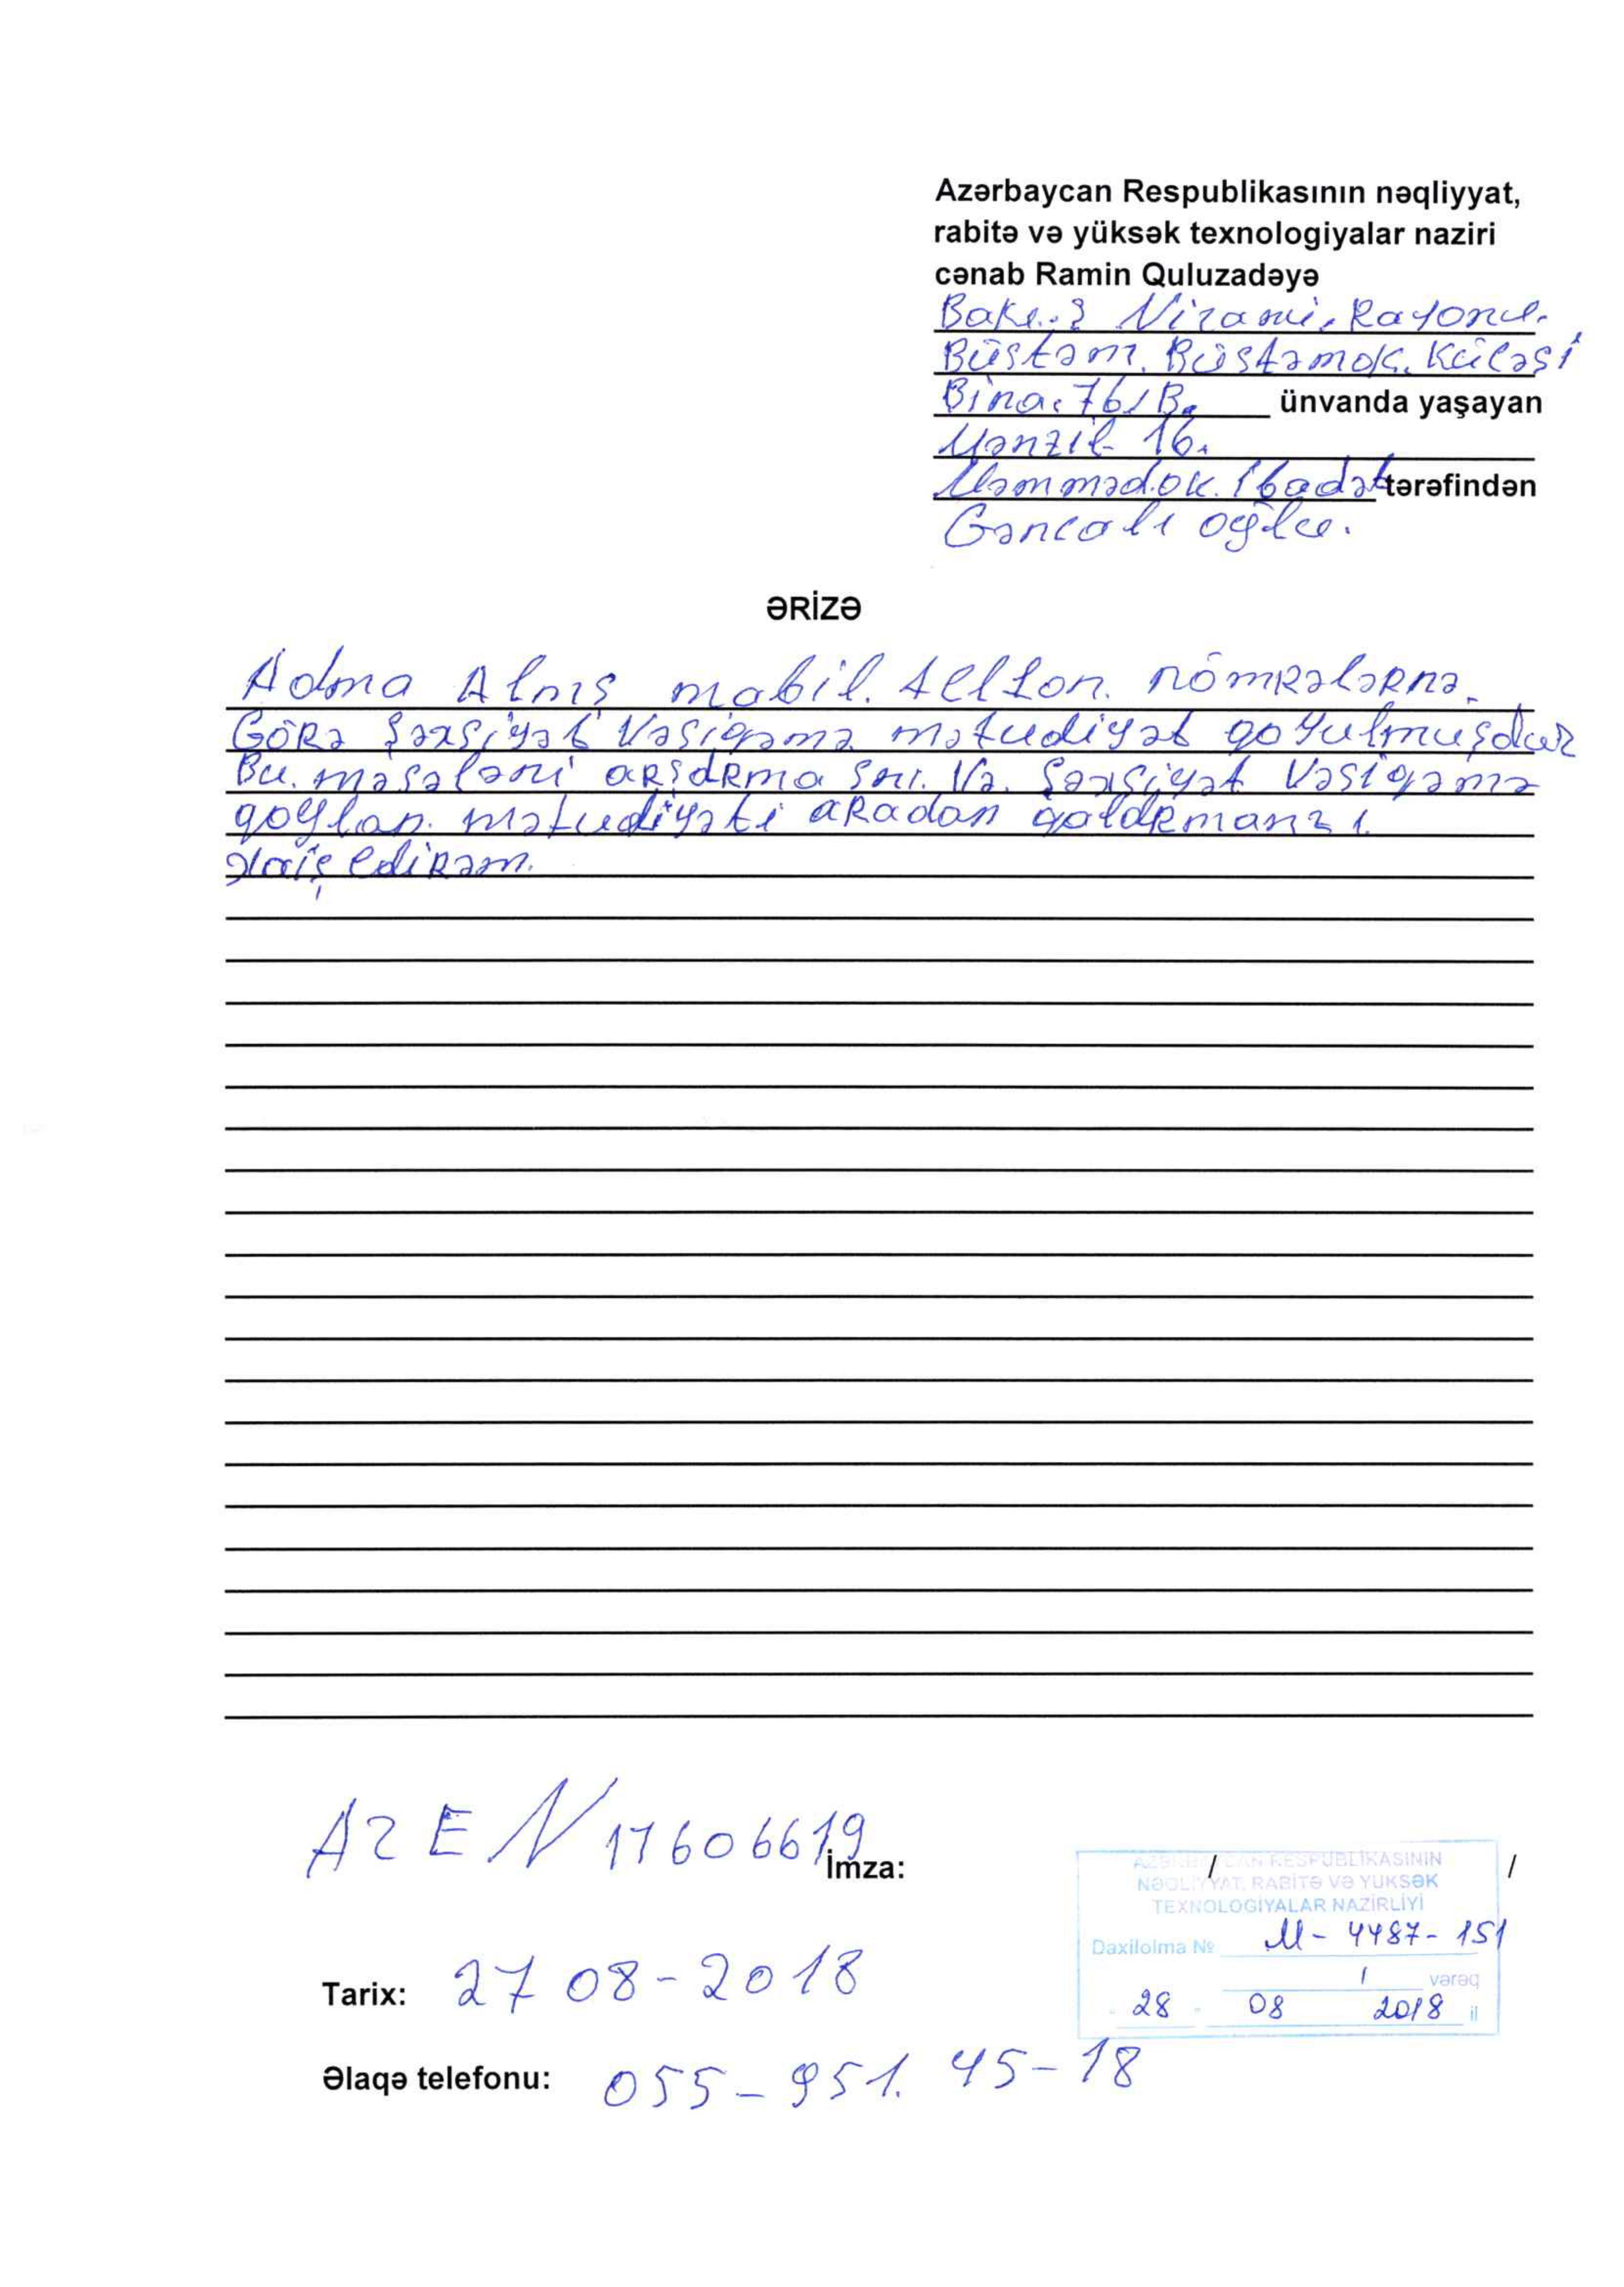 Azərbaycan Respublikasının nəqliyyat,
rabitə və yüksək texnologiyalar naziri
cənab Ramin Quluzadəyə
Nizami. Rayonu.
Büstəm. Büstəmok. Küləsi
Bina. 76/B. ünvanda yaşayan
Mənzil 16.
Məmmədok. İbadət tərəfindən
Gəncəli oğlu.
ƏRİZƏ
Adma Alnış mobil. telfon. nömRələRnə.
GöRə Şəxsiyət Vəsiqəmə məhudiyət qoyulmuşduR
Bu. məsələni aRşdRma Snı. Və. Şəxsiyət Vəsiqəmə
qoylan. məhudiyəti aRadan qaldRmanz ı.
ediRəm.
AZE N 17606619
İmza: / /
AZƏRBAYCAN RESPUBLİKASININ
NƏQLİYYAT, RABİTƏ VƏ YÜKSƏK
TEXNOLOGİYALAR NAZİRLİYİ
Daxilolma № M- 4487- 151
1 vərəq
28 08 2018 il
Tarix: 27 08-2018
Əlaqə telefonu: 055-951. 45-18